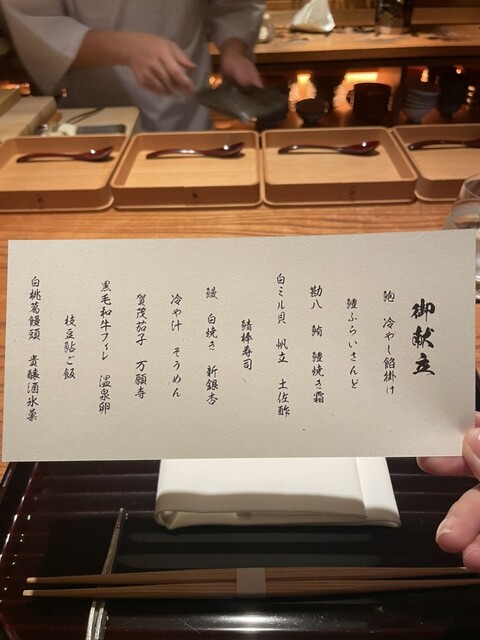 御献立
鮑 冷やし餡掛け
鱧ふらいさんど
勘八 鮪 鱧焼き霜
白ミル貝 帆立 土佐酢
鯖棒寿司
鰻 白焼き 新銀杏
冷や汁 そうめん
賀茂茄子 万願寺
黒毛和牛フィレ 温泉卵
枝豆鮎ご飯
白桃葛饅頭 貴醸酒氷菓